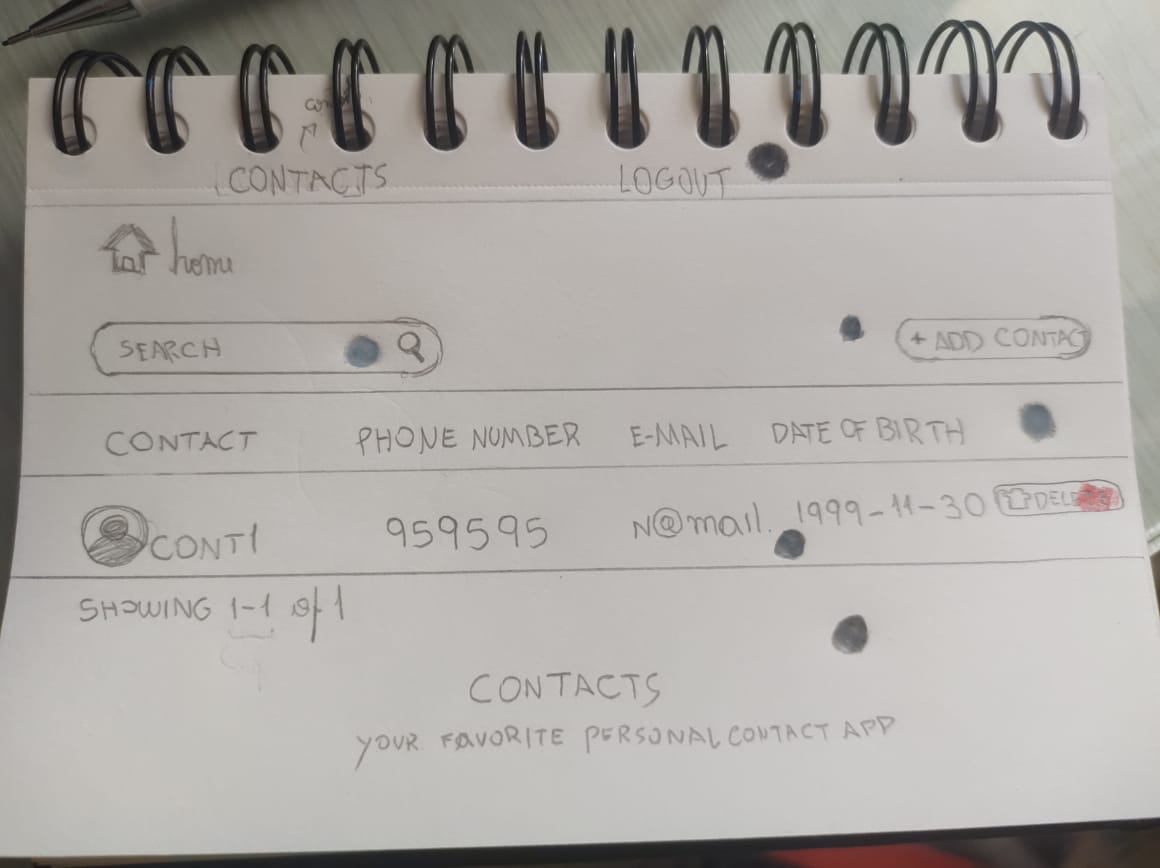 CONTACTS LOGOUT
home
SEARCH + ADD CONTACT
CONTACT PHONE NUMBER E-MAIL DATE OF BIRTH
CONT1 959595 N@mail. 1999-11-30
SHOWING 1-1 of 1
CONTACTS
YOUR FAVORITE PERSONAL CONTACT APP